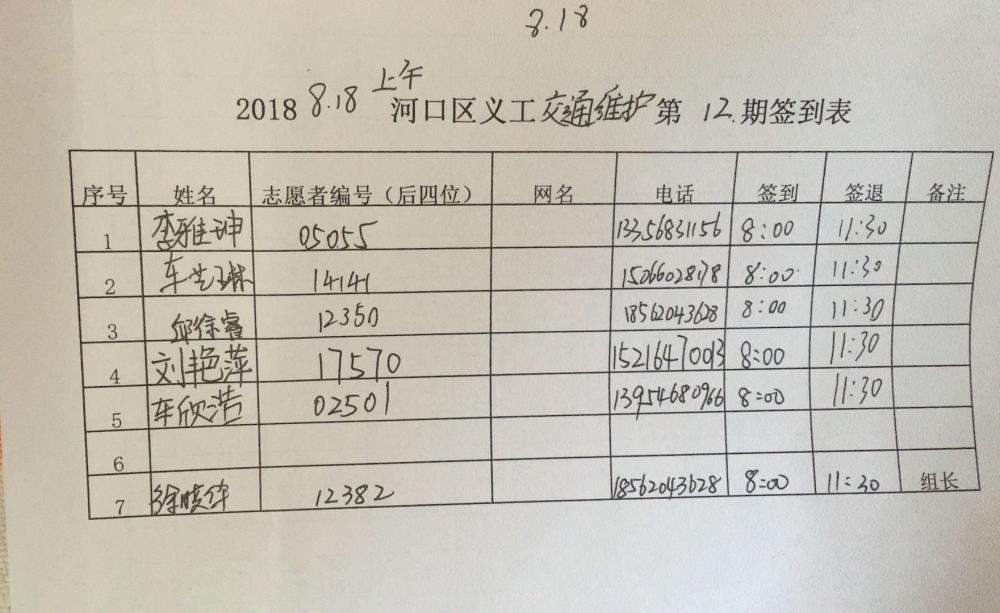 8.18
2018 8.18 上午 河口区义工交通维护第 12.期签到表
序号 姓名 志愿者编号（后四位） 网名 电话 签到 签退 备注
1 李雅珅 05055 13356831156 8:00 11:30
2 车艺琳 14141 15066028178 8:00 11:30
3 邱徐睿 12350 18562043628 8:00 11:30
4 刘艳萍 17570 15216470013 8:00 11:30
5 车欣浩 02501 13954680966 8:00 11:30
6
7 徐晓 12382 18562043628 8:00 11:30 组长